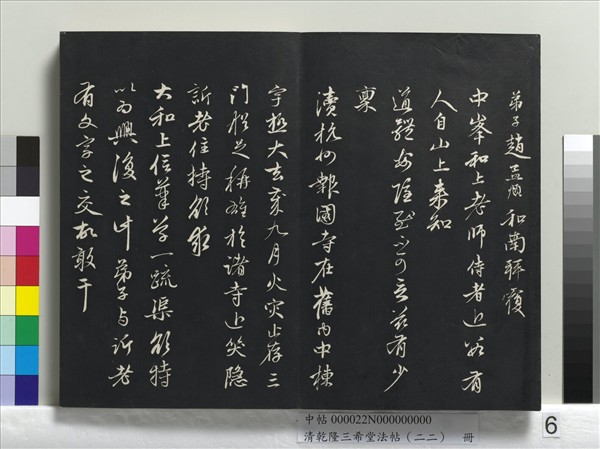 弟子趙孟頫和南拜覆
中峯和上老師侍者近有
人自山上來知
道體安隱慰不可言茲有少
稟
瀆杭州報國寺在舊內中棟
宇極大去歲九月火災止存三
門猶足稱雄於諸寺近笑隱
訢老住持欲求
大和上信筆寫一疏渠欲持
以為興復之計弟子與訢老
有文字之交故敢干
中帖 000022N000000000
清乾隆三希堂法帖（二二） 冊
6